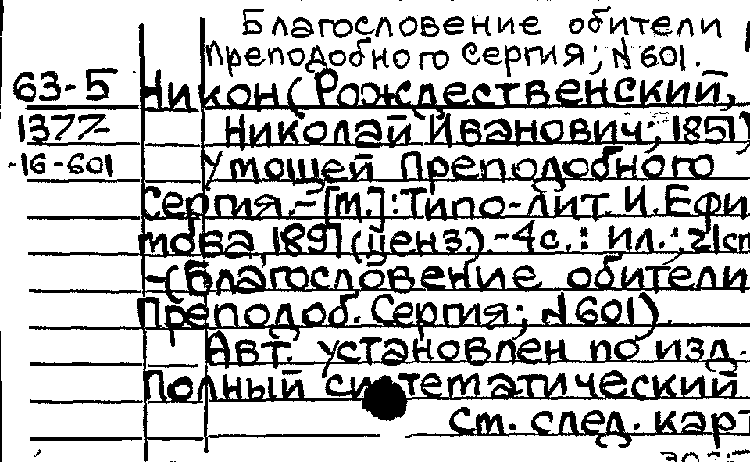 Благословение обители
Преподобного Сергия; N 601.
63-5 Никон (Рождественский,
1377- Николай Иванович; 1851)
-16-601 У мощей Преподобного
Сергия. - [М.]: Типо-лит. И. Ефи
мова, 1897 (ценз.). - 4 с.: ил.; 21 см
- (Благословение обители
Преподоб. Сергия; N 601).
Авт. установлен по изд.
Полный систематический
См. след. карт